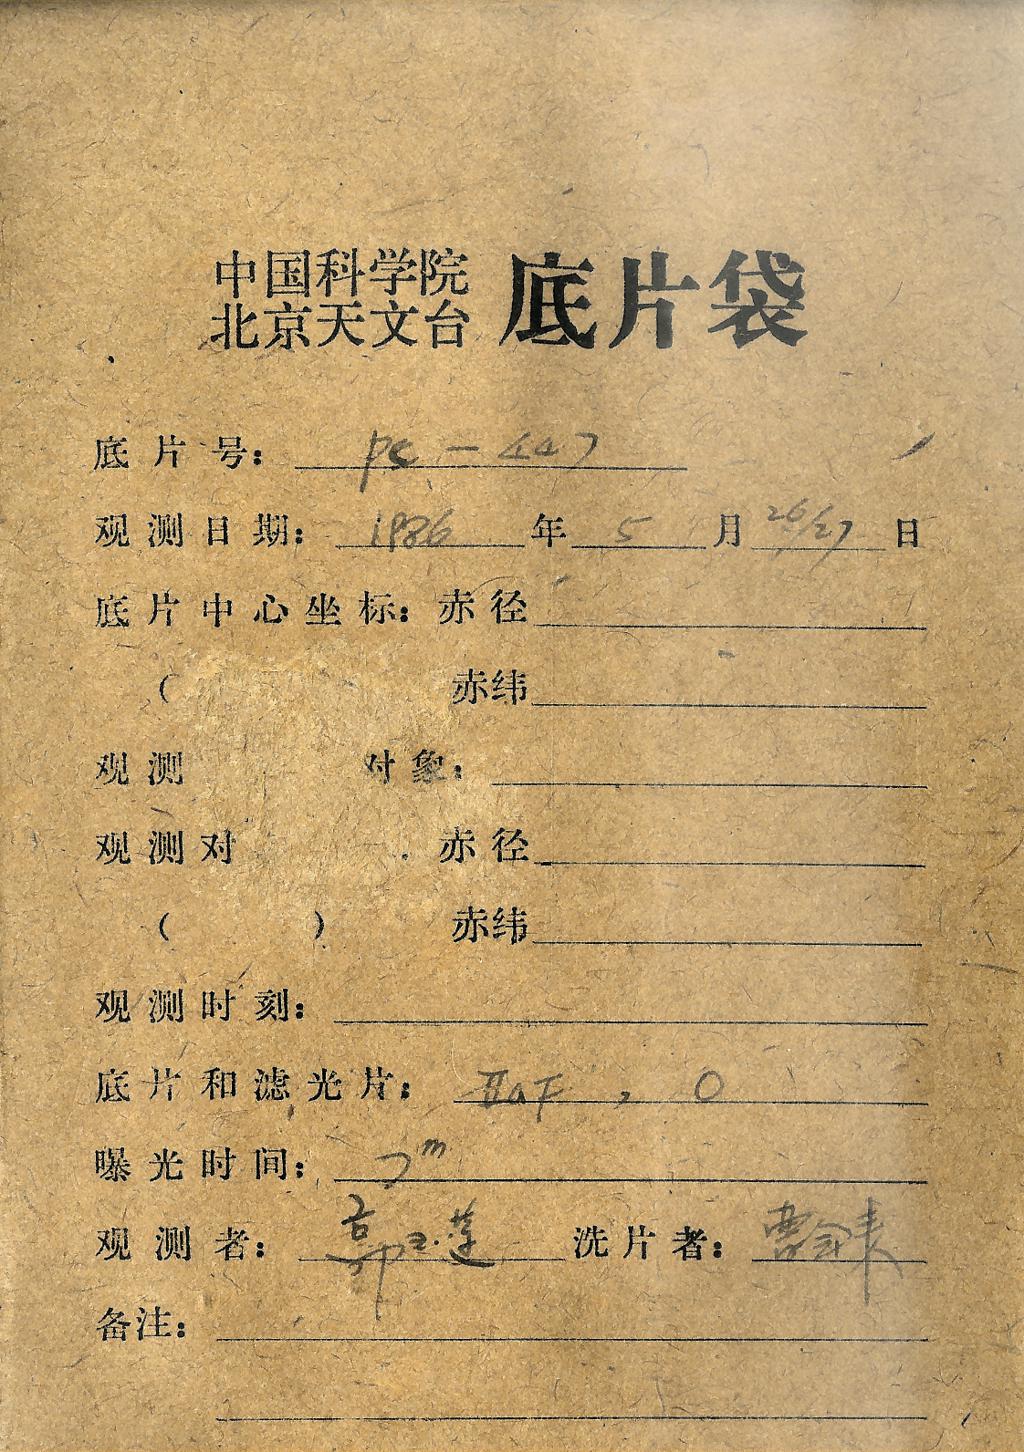 中国科学院
北京天文台 底片袋
底片号: pc-447
观测日期: 1986年5月26/27日
底片中心坐标: 赤径
( 赤纬
观测 对象:
观测对 赤径
( ) 赤纬
观测时刻:
底片和滤光片: IIaF, O
曝光时间:
观测者: 郭 莲 洗片者: 曹
备注: